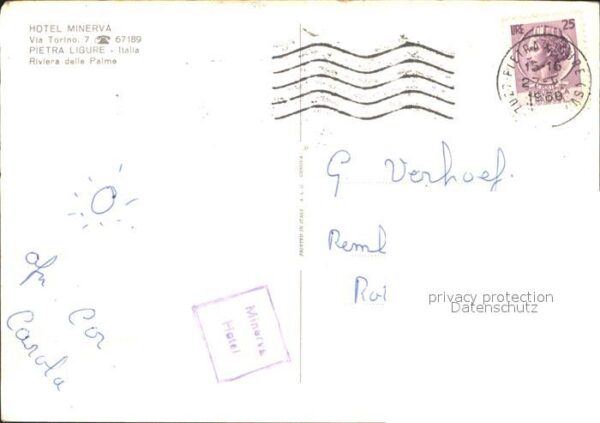 HOTEL MINERVA
Via Torino, 7 ☎ 67189
PIETRA LIGURE - Italia
Riviera delle Palme
LIRE 25
PIETRA LIGURE (SV)
15-16
1968
G Verhoef.
Reml
Roi
privacy protection
Datenschutz
PRINTED IN ITALY
Cor
Carola
Minerva
Hotel